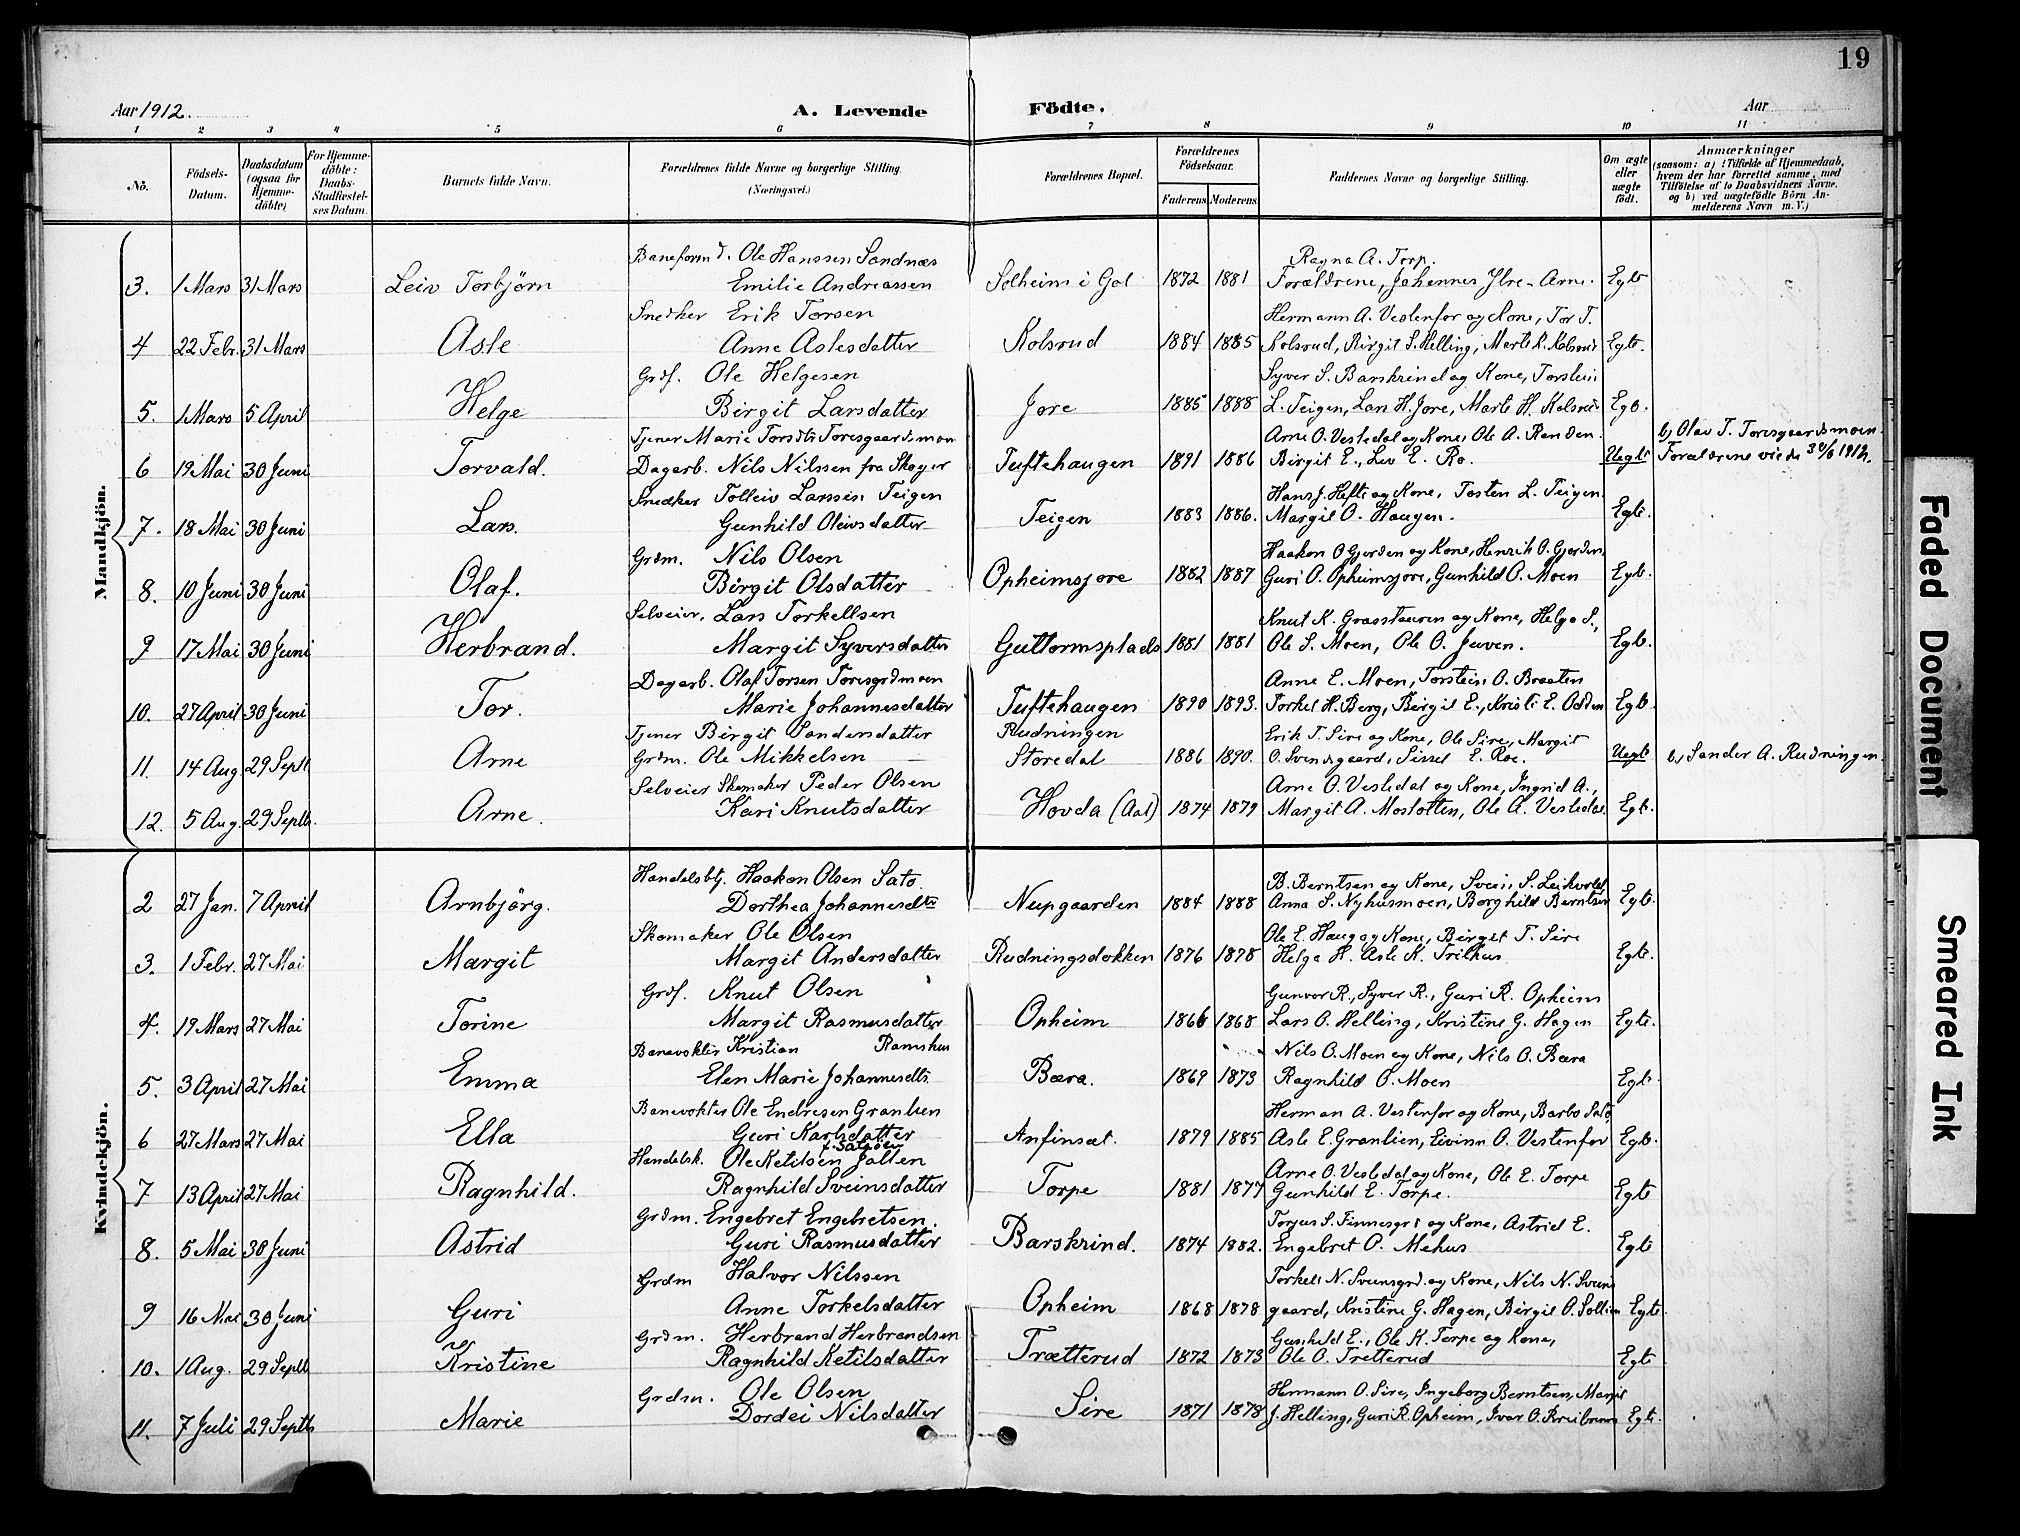 19
Aar 1912. A. Levende Födte. Aar
1 2 3 4 5 6 7 8 9 10 11
No. Födsels-Datum. Daabsdatum (ogsaa for Hjemme-döbte) For Hjemme-döbte: Daabs-Stadfæstel-ses Datum. Barnets fulde Navn. Forældrenes fulde Navne og borgerlige Stilling. (Næringsvei.) Forældrenes Bopæl. Forældrenes Födselsaar. Faderens Moderens Faddernes Navne og borgerlige Stilling. Om ægte eller uægte födt. Anmærkninger (saasom: a) i Tilfælde af Hjemmedaab, hvem der har forrettet samme, med Tilföielse af to Daabsvidners Navne, og b) ved uægtefödte Börn An-melderens Navn m. V.)
Mandkjön.
Baneform d. Ole Hanssen Sandnæs Ragna A. Torp.
3. 1 Mars 31 Mars Leiv Torbjörn Emilie Andreassen Solheim i Gol 1872 1881 Forældrene, Johannes Ylre-Arne. Egte
Snedker Erik Torsen Hermann A. Vestenfor og Kone, Tor T.
4 22 Febr. 31 Mars Asle Anne Aslesdatter Kolsrud 1884 1885 Kolsrud, Birgit S. Helling, Marte K. Kolsrud Egte.
Grdf. Ole Helgesen Syver S. Barskrind og Kone, Torstein
5. 1 Mars 5 April Helge Birgit Larsdatter Jore 1885 1888 L. Teigen, Lars H. Jore, Marte H. Kolsrud Egte.
Tjener Marie Torsdtr Toresgaardsmoen Arne O. Vestedal og Kone, Ole A. Randen. b, Olav T. Toresgaardsmoen.
6 19 Mai 30 Juni Torvald. Dagarb. Nils Nilssen fra Skoger Tuftehaugen 1891 1886 Birgit E., Lev E. Ro. Uegte Forældrene viede 30/6 1912.
Snedker Tolleiv Larssen Teigen Hans J. Hefte og Kone, Tosten L. Teigen
7. 18 Mai 30 Juni Lars. Gunhild Oleivsdatter Teigen 1883 1886. Margit O. Haugen. Egte.
Grdm. Nils Olsen Haakon O Gjerden og Kone, Henrik O. Gjerden,
8. 10 Juni 30 Juni Olaf. Birgit Olsdatter Opheimsjore 1882 1887 Guri O. Opheimsjore, Gunhild O. Moen Egte.
Selveier, Lars Torkellsen Knut K. Grosstauren og Kone, Helge S.,
9 17 Mai 30 Juni Herbrand. Margit Syversdatter Guttormsplads 1881 1881 Ole S. Moen, Ole O. Juven. Egte.
Dagarb. Olaf Torsen Toresgrdmoen Anne E. Moen, Torstein O. Braaten
10. 27 April 30 Juni Tor. Marie Johannesdatter Tuftehaugen 1890 1893. Torkel H. Berg, Birgit E., Kristi E. Odden Egte.
Tjener Birgit Sandersdatter Rudningen Erik T. Sire og Kone, Ole Sire, Margit
11. 14 Aug 29 Septb Arne Grdm. Ole Mikkelsen Storedal 1886 1890. O. Svendsgaard, Sissel E. Roe. Uegte b, Sander A. Rudningen
Selveier Skomaker Peder Olsen Arne O. Vestedal og Kone, Ingrid A.,
12. 5 Aug. 29 Septb. Arne. Kari Knutsdatter Hovda (Aal) 1874 1879 Margit A. Moslotten, Ole A. Vestedal Egte.
Kvindekjön.
Handelsbtj. Haakon Olsen Sato B. Berntsen og Kone, Svein S. Leikvold,
2 27 Jan. 7 April Arnbjörg. Dorthea Johannesdtr Nupgaarden 1884 1888 Anna S. Nyhusmoen, Borghild Berntsen Egte.
Skomaker Ole Olsen Ole E. Haug og Kone, Birgit T. Sire
3. 1 Febr. 27 Mai Margit Margit Andersdatter Rudningsdokken 1876 1878 Helga H. Asle K. Trilhus Egte.
Grdf. Knut Olsen Gunvor R., Syver R., Guri R. Opheim
4. 19 Mars 27 Mai Torine Margit Rasmusdatter Opheim 1866 1868 Lars O. Helling, Kristine G. Hagen Egte.
Banevokter Kristian Ramshus Nils O. Moen og Kone, Nils O. Bæra
5. 3 April 27 Mai Emma Elen Marie Johannesdtr Bæra. 1869 1873 Ragnhild O. Moen Egte.
Banevokter Ole Endresen Granlien Herman A. Vestenfor og Kone, Barbo Sato,
6 27 Mars 27 Mai Ella Guri Karlsdatter Anfinset. 1879 1885 Asle E. Granlien, Eivinn O. Vestenfor Egte.
Handelsk. Ole Ketilsen Jallen Arne O. Vestedal og Kone, Ole E. Torpe
7 13 April 27 Mai Ragnhild. Ragnhild Sveinsdatter Torpe 1881 1877 Gunhild E. Torpe. Egte
Grdm. Engebret Engebretsen. Torjus S. Finnesgrd og Kone, Astrid E.
8. 5 Mai 30 Juni Astrid Guri Rasmusdatter Barskrind. 1874 1882. Engebret O. Mehus Egte
Grdm Halvor Nilssen Torkel N. Svensgrd. og Kone, Nils N. Svens
9 16 Mai 30 Juni Guri Anne Torkelsdatter Opheim 1868 1878 gaard, Kristine G. Hagen, Birgit O. Sollien Egte.
Grdm. Herbrand Herbrandsen Gunhild E., Ole K. Torpe og Kone,
10. 1 Aug. 29 Septb Kristine Ragnhild Ketilsdatter Trætterud 1872 1873 Ole O. Tretterud Egte
Grdm. Ole Olsen Hermann O. Sire, Ingeborg Berntsen, Margit
11. 7 Juli 29 Septb Marie Dordei Nilsdatter Sire 1871 1878 J. Helling, Guri R. Opheim, Ivar O. Egte.
Faded Document
Smeared Ink